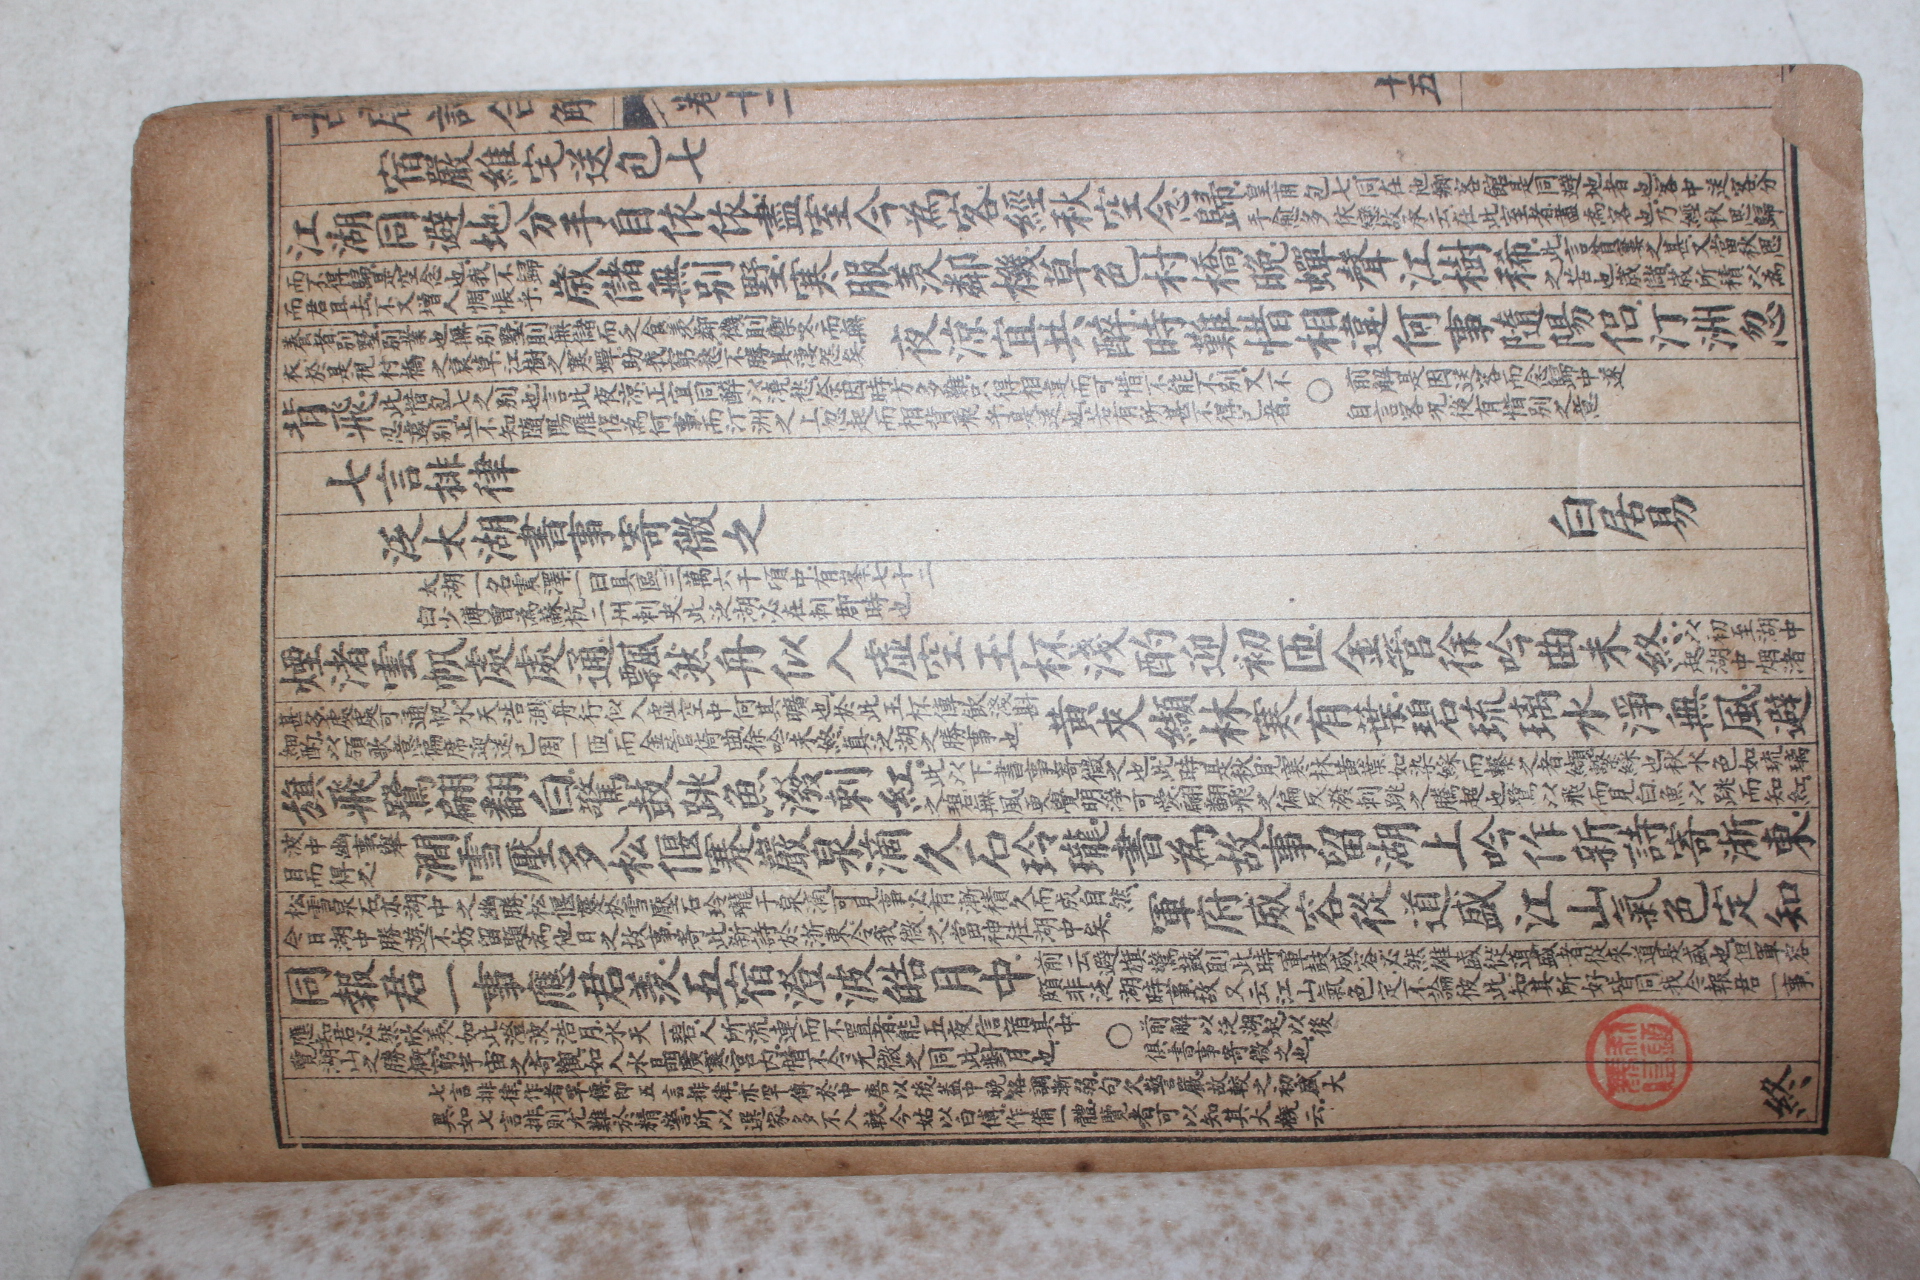 古唐詩合解 卷十二 十五
宿嚴維宅送包七
江湖同避地分手自依依盡室今為客經秋空念歸
皇甫包七同在他鄉客館是同避地者也客中送客分
手愈多依戀故承云在此室者盡為客也乃經秋思歸
而不得歸是空念也我不歸
而君且去不又增人惆悵乎
歲儲無別墅寒服羨鄰機草色村橋晚蟬聲江樹稀
此言貧窶之甚又當秋思
之苦也歲儲歲所積以為
養者別墅別業也無別墅則無儲而之食羨鄰機則禦冬而無
衣於是視村橋之衰草江樹之寒蟬助我窮愁不勝其淒怨矣
夜涼宜共醉時難惜相違何事隨陽侶汀洲忽
背飛
此惜包七之別也言此夜涼正宜同醉以澆愁奈因時方多難只得相違而可惜不能不別又不
忍遽別正不知隨陽雁侶為何事而汀洲之上忽起而相背飛乎是送也若有所甚不得已者
○
前解是因送客而念歸中遂
自言客況後有惜別之意
七言排律
泛太湖書事寄微之 白居易
太湖一名震澤一曰具區三萬六千頃中有峯七十二
白少傅曾為蘇杭二州刺史此泛湖必在刺郡時也
煙渚雲帆處處通飄然舟似入虛空玉杯淺酌迎初匝金管徐吟曲未終
以初至湖中
起湖中烟渚
甚多處處可通帆水天浩渺舟行似入虛空中何其曠也於此玉杯傳飲淺斟
細酌以領歌意徧席迎送已周一匝而金管倚曲徐吟未終真泛湖之勝事也
黃夾纈林寒有葉碧琉璃水淨無風避
旗飛鷺翩翻白驚鼓跳魚潑剌紅
此以下書事寄微之也此時是秋見寒林黃葉如染綵而繫之者纈繫綵也秋水色如琉璃
之碧無風更覺明淨可愛翩翻飛之偏反潑剌跳之騰超也鷺以飛而見白魚以跳而知紅
波中幽事舉
目而得之
澗雪壓多松偃蹇巖泉滴久石玲瓏書為故事留湖上吟作新詩寄浙東
松雪泉石亦湖中之幽勝松偃蹇於雪壓石玲瓏于泉滴可見事必有漸積久而成自然
今日湖中勝遊不妨留題為他日之故事寄此新詩於浙東令我微之當神往湖中矣
軍府威容從道盛江山氣色定知
同報君一事應君羨五宿澄波皓月中
前云避旗驚鼓則此時軍鼓威容必然雄盛從道盛者從來道是盛也但軍容
頗非泛湖時事故又云江山氣色定不論彼此知其所好皆同我今報君一事
應知君必然欣羨如此澄波浩月水天一碧人所流連而不置者能五夜信宿其中
覽湖山之勝概窮宇宙之奇觀如入水晶廣寒宮內惜不令元微之同此對月也
○
前解以泛湖起以後
俱書事寄微之也
七言排律作者罕傳即五言排律亦罕傳於中唐以後蓋中晚格調漸弱句欠警嚴故較之初盛大
異如七言排則尤難於精警所以選家多不入軼今姑以白傅作備一體覽者可以知其大概云
終